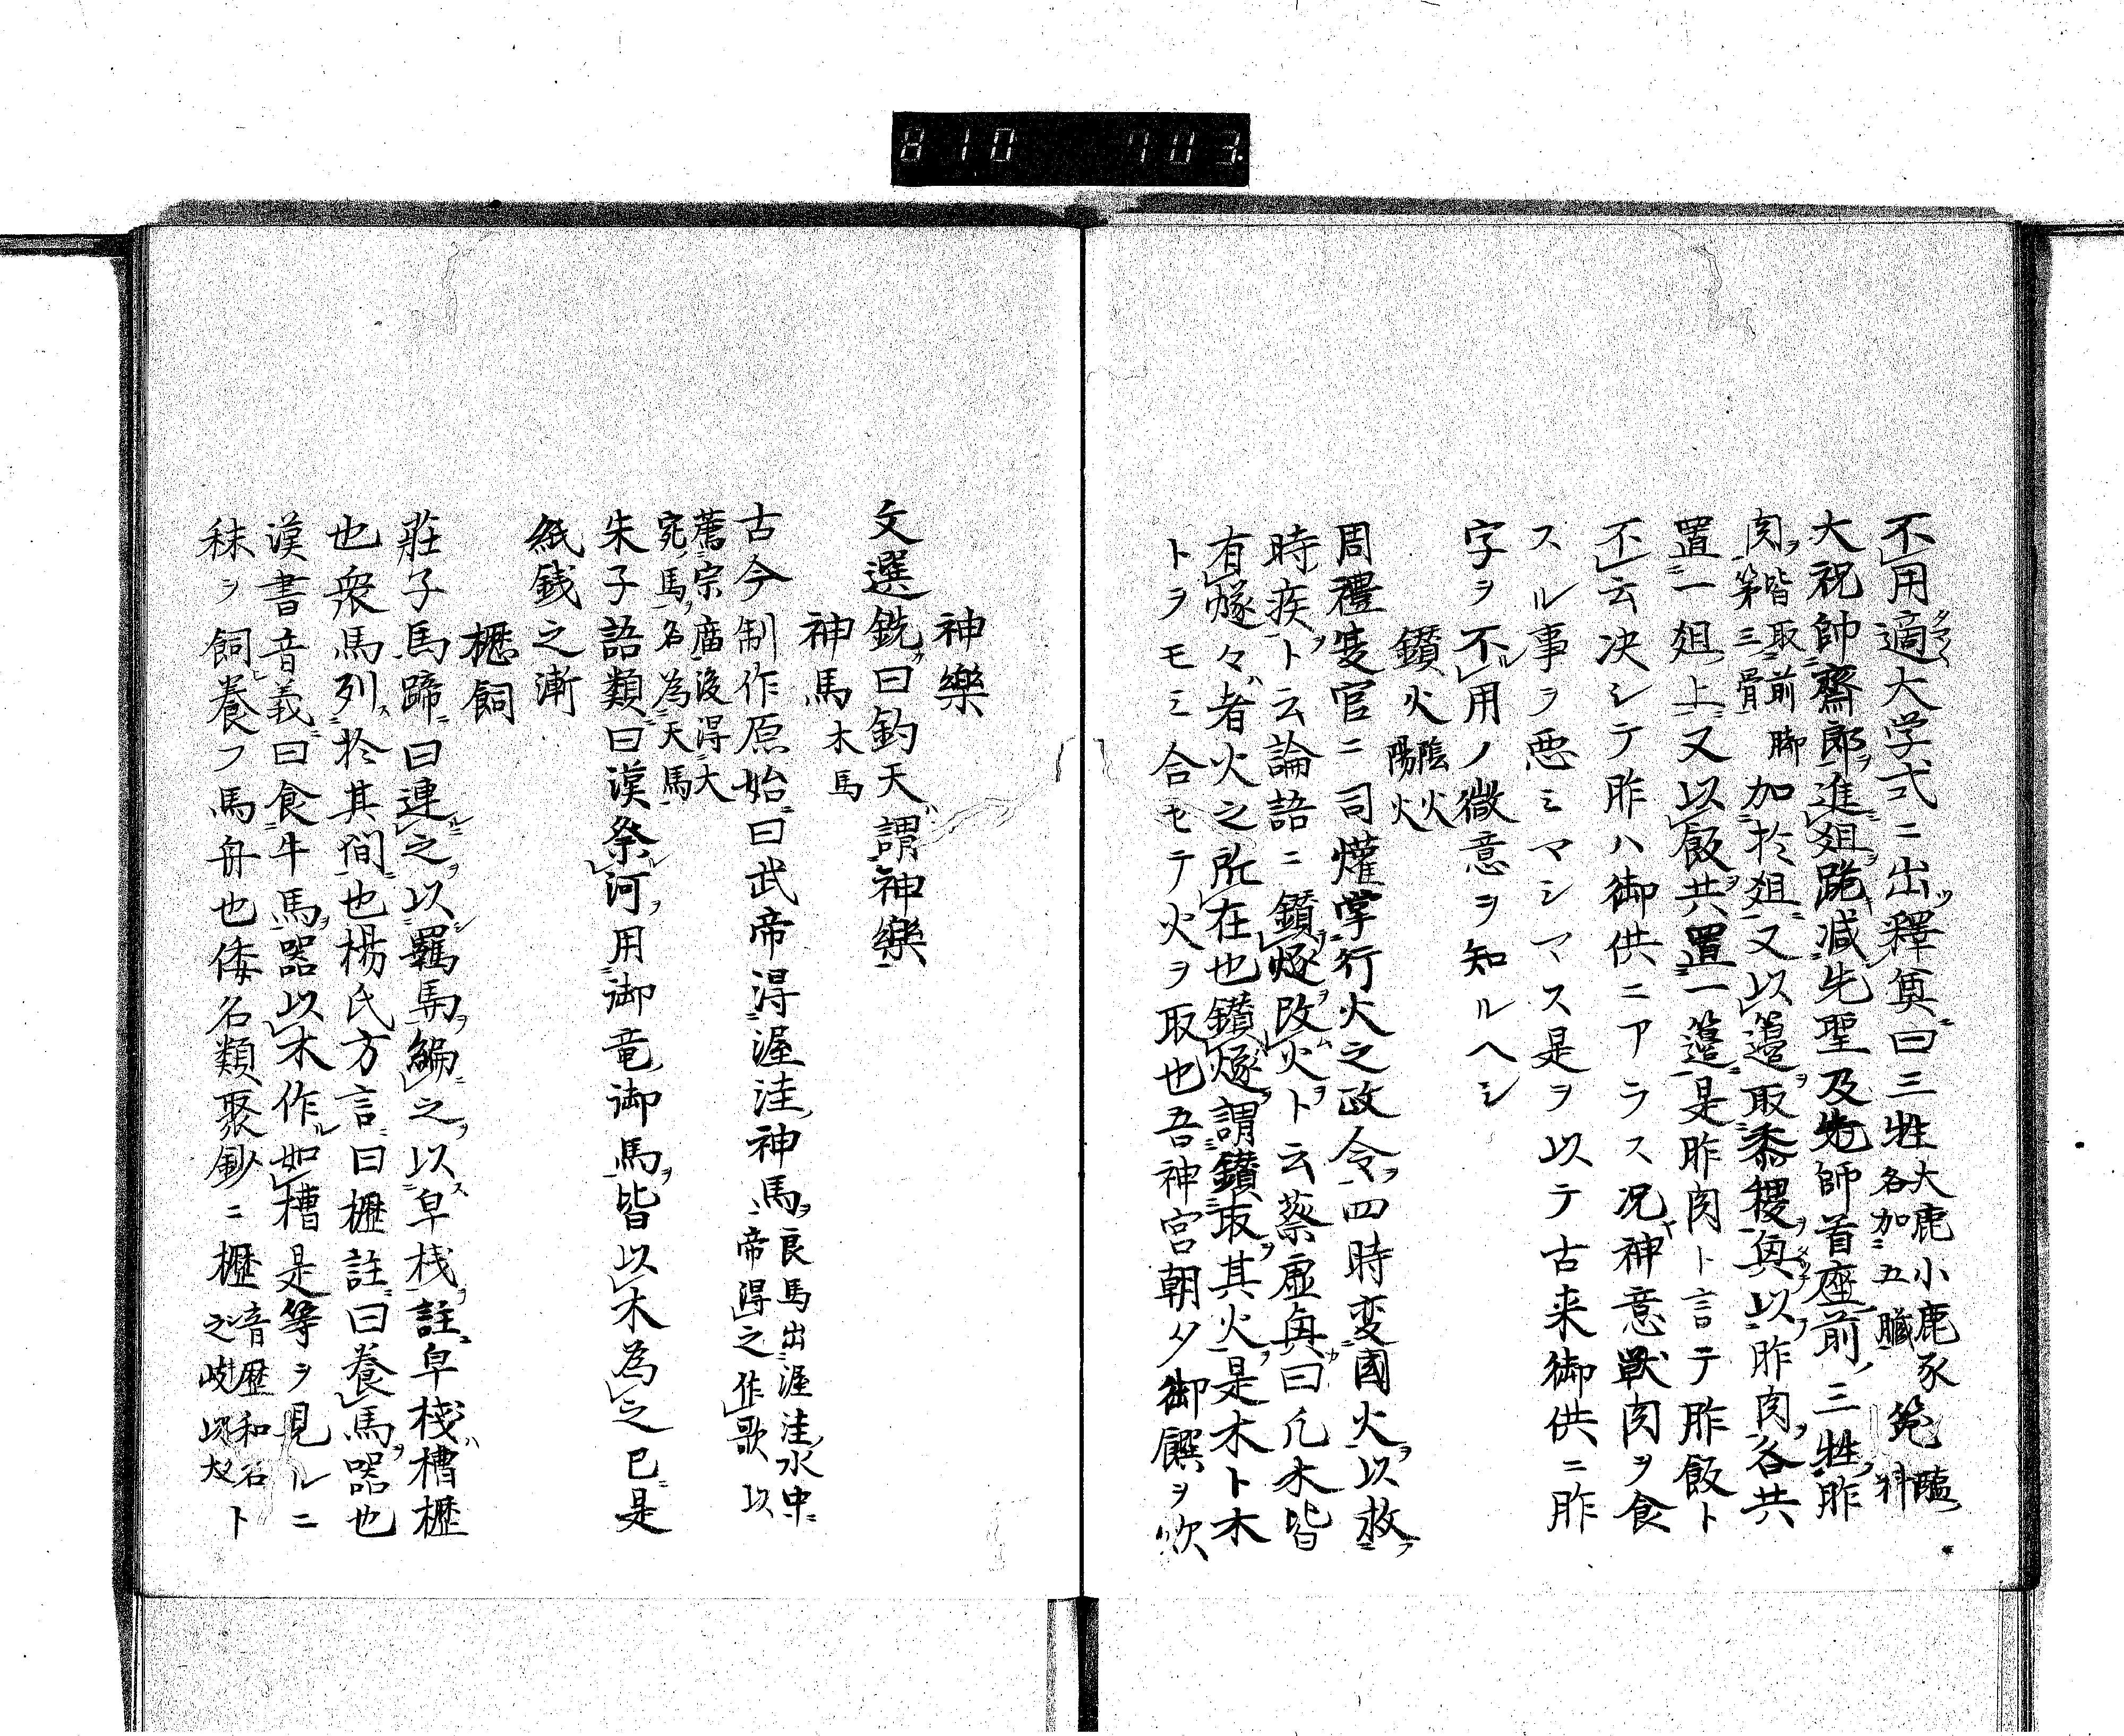 810 703.
不用適大学式ニ出釋奠曰三牲大鹿小鹿豕各加五臓菟醢料
大祝帥齋郎進爼跪减先聖及先師首座前三牲胙
肉皆取前脚第三骨加於爼又以籩取黍稷奥以胙肉各共
置一爼上又以飯共置一籩是胙肉ト言テ胙飯ト
不云决シテ胙ハ御供ニアラス况神意獣肉ヲ食
スル事ヲ悪ミマシマス是ヲ以テ古来御供ニ胙
字ヲ不用ノ微意ヲ知ルヘシ
鑚火陰火陽火
周禮夏官ニ司爟掌行火之政令四時変國火以救
時疾ト云論語ニ鑚燧改火ト云蔡虚斎曰凡木皆
有燧々者火之所在也鑚燧謂鑚取其火是木ト木
トヲモミ合セテ火ヲ取也吾神宮朝夕御饌ヲ炊
神樂
文選銑曰釣天謂神樂
神馬木馬
古今制作原始曰武帝得渥洼神馬良馬出渥洼水中帝得之作歌以
薦宗庿後得大宛馬名為天馬
朱子語類曰漢祭河用御竜御馬皆以木為之已是
紙銭之漸
櫪飼
莊子馬蹄曰連之以羈馬編之以皁栈註皁棧槽櫪
也衆馬列於其間也楊氏方言曰櫪註曰養馬器也
漢書音義曰食牛馬器以木作如槽是等ヲ見ルニ
秣ヲ飼養フ馬舟也倭名類聚鈔ニ櫪音歴和名之岐以太ト